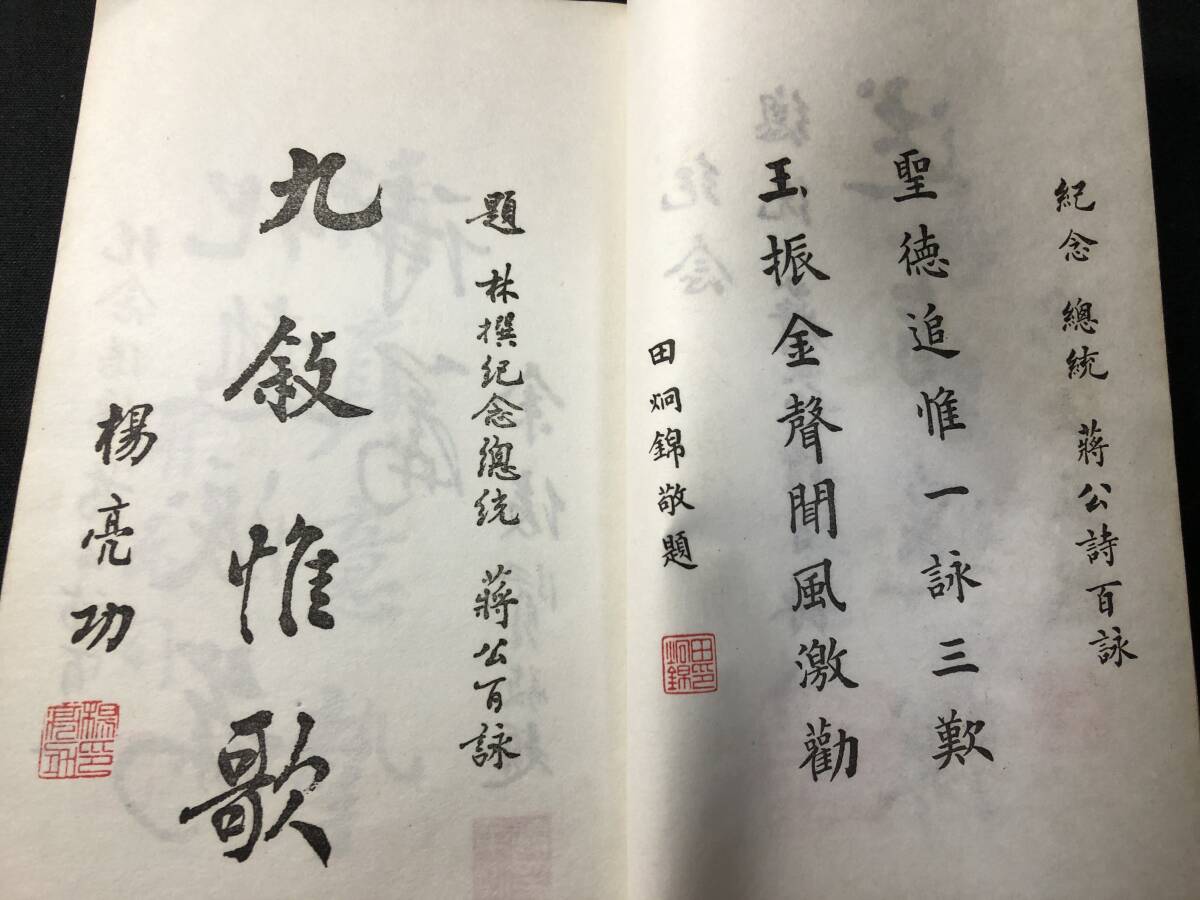 紀念 總統 蔣公詩百詠
聖德追惟一詠三歎
玉振金聲聞風激勸
田炯錦敬題
田炯錦印
題 林撰紀念總統 蔣公百詠
九敍惟歌
楊亮功